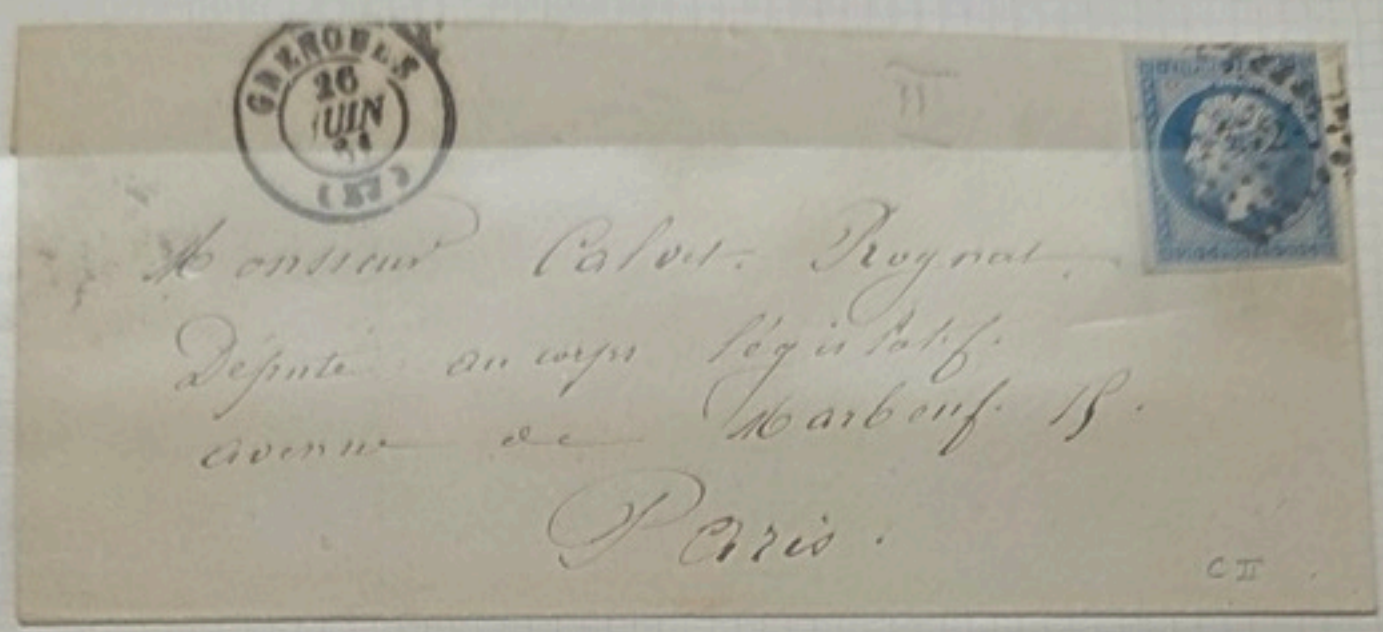 GRENOBLE
26
JUIN
(37)
II
Monsieur Calvet-Rognat.
Député au corps législatif.
avenue de Marbeuf. 15.
Paris.
C II